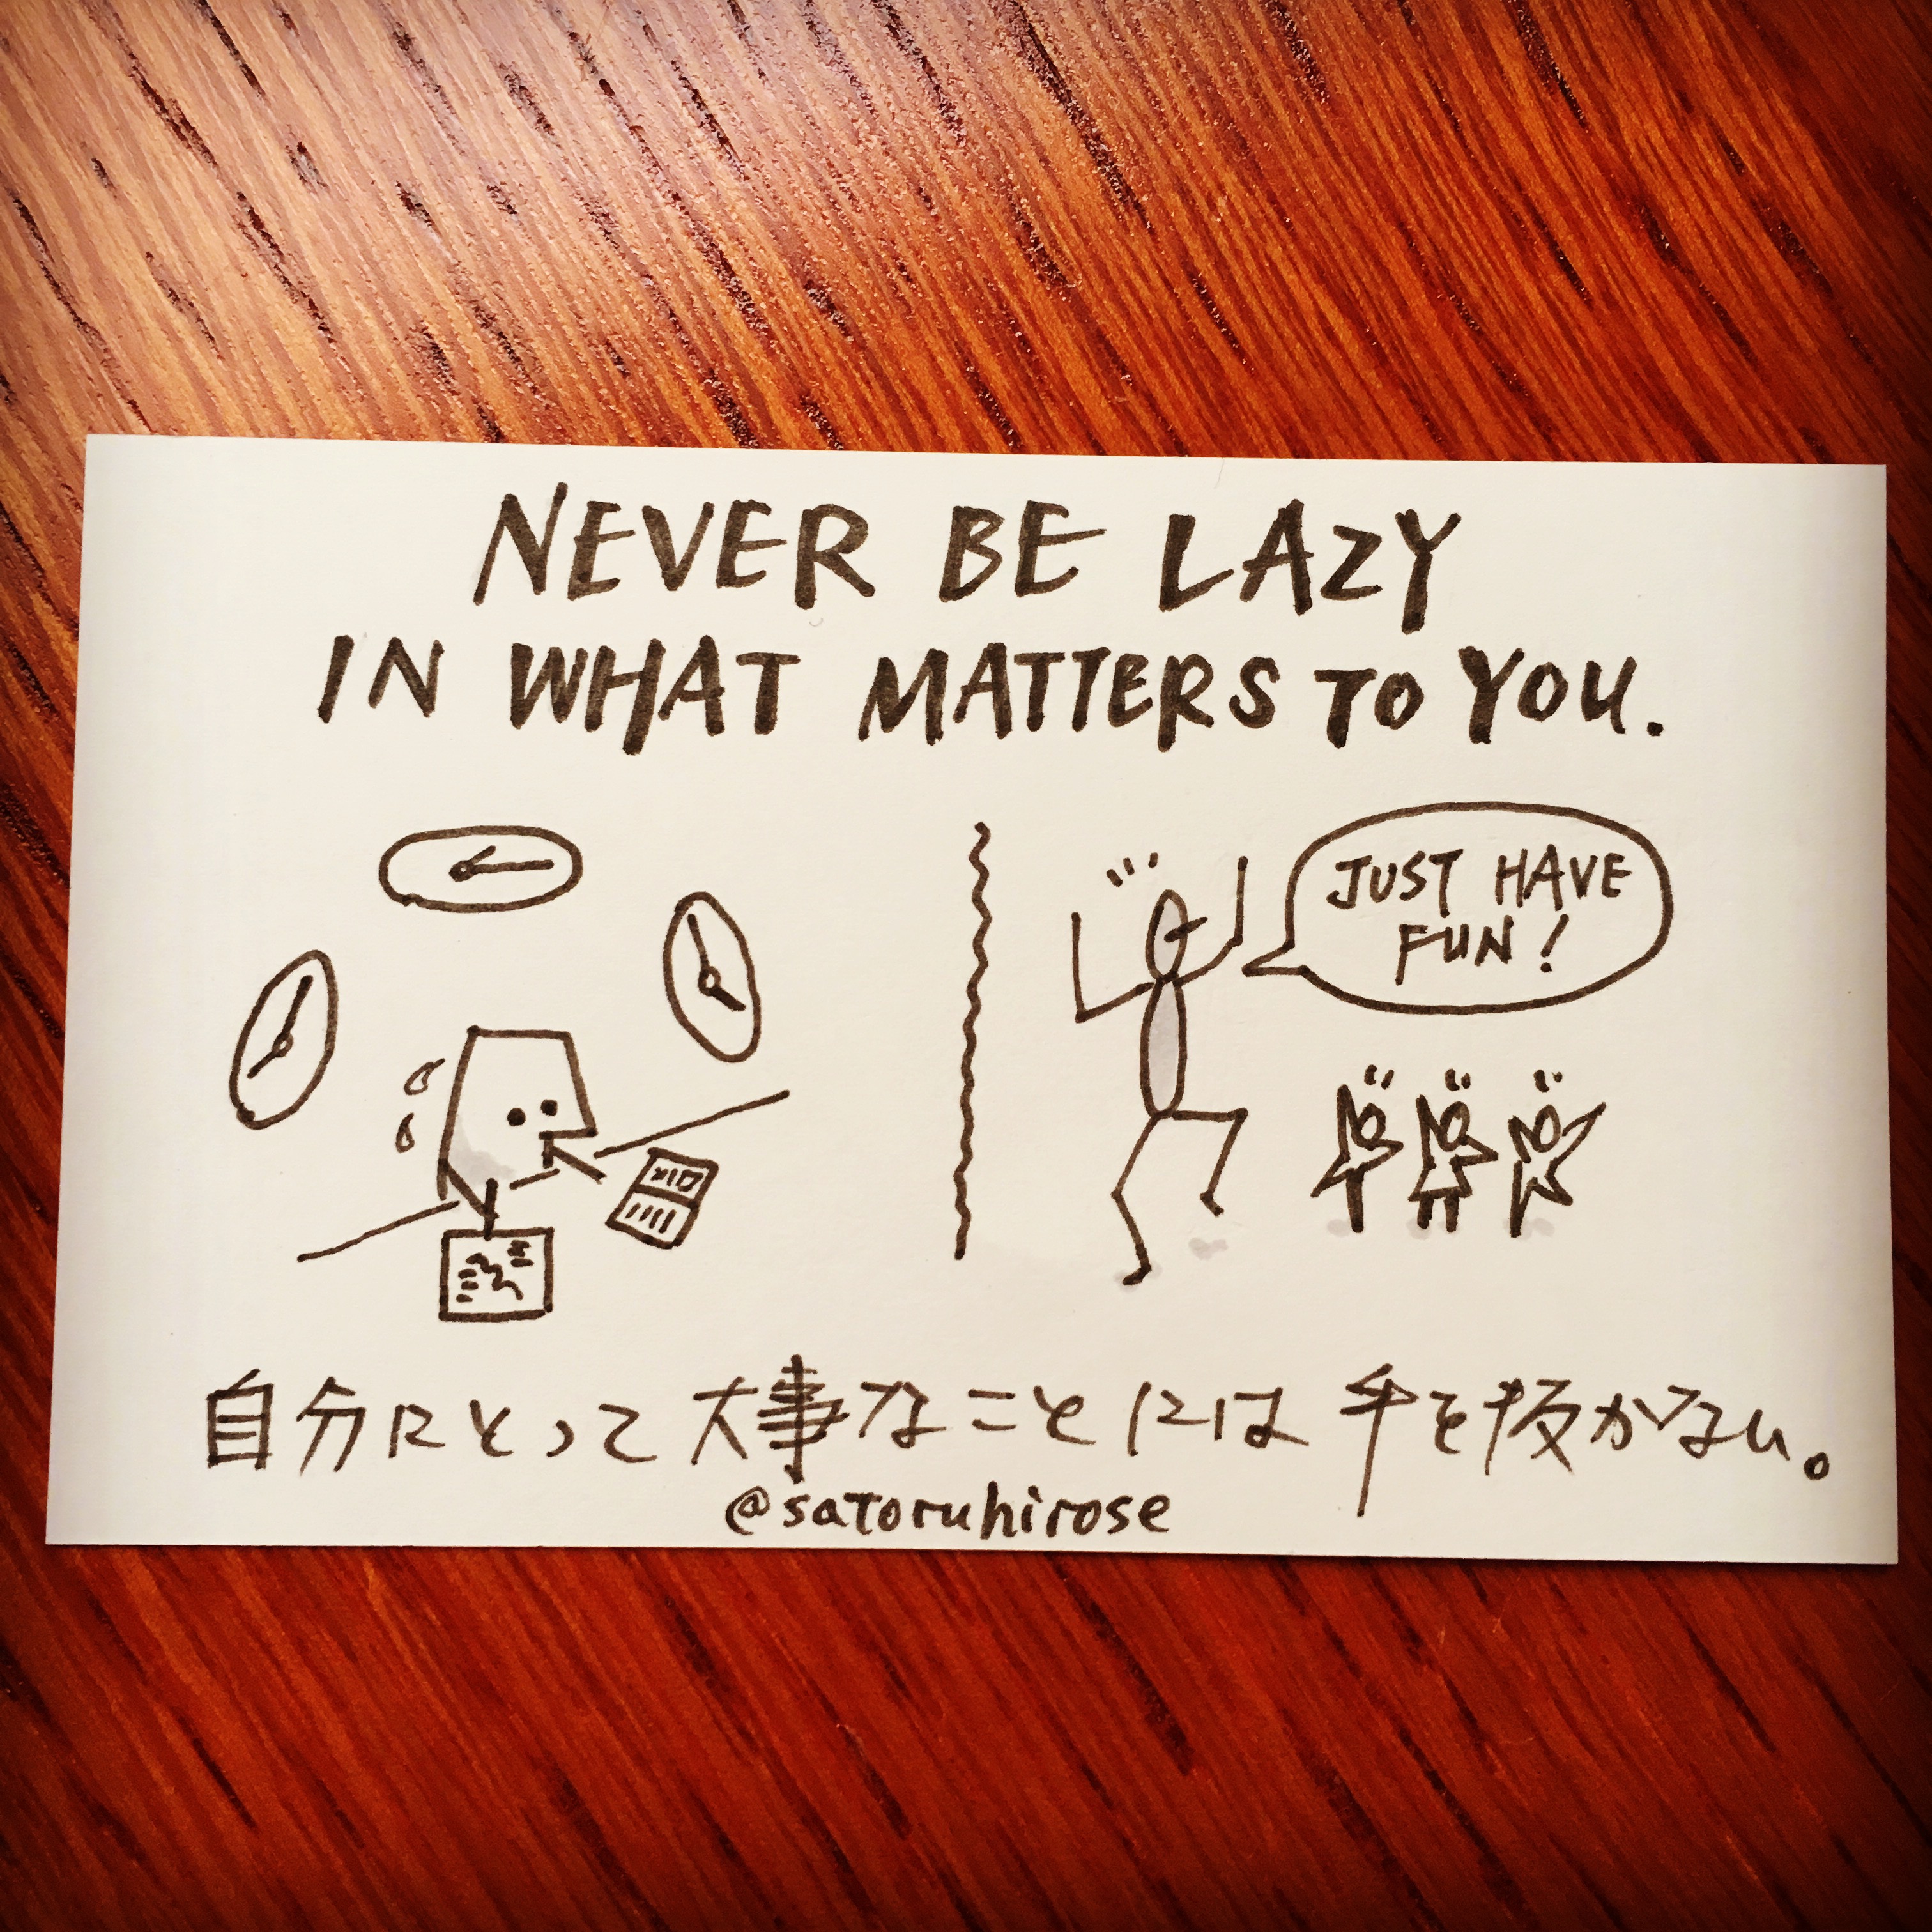 NEVER BE LAZY
IN WHAT MATTERS TO YOU.
JUST HAVE
FUN!
自分にとって大事なことには手を抜かない。
@satoruhirose